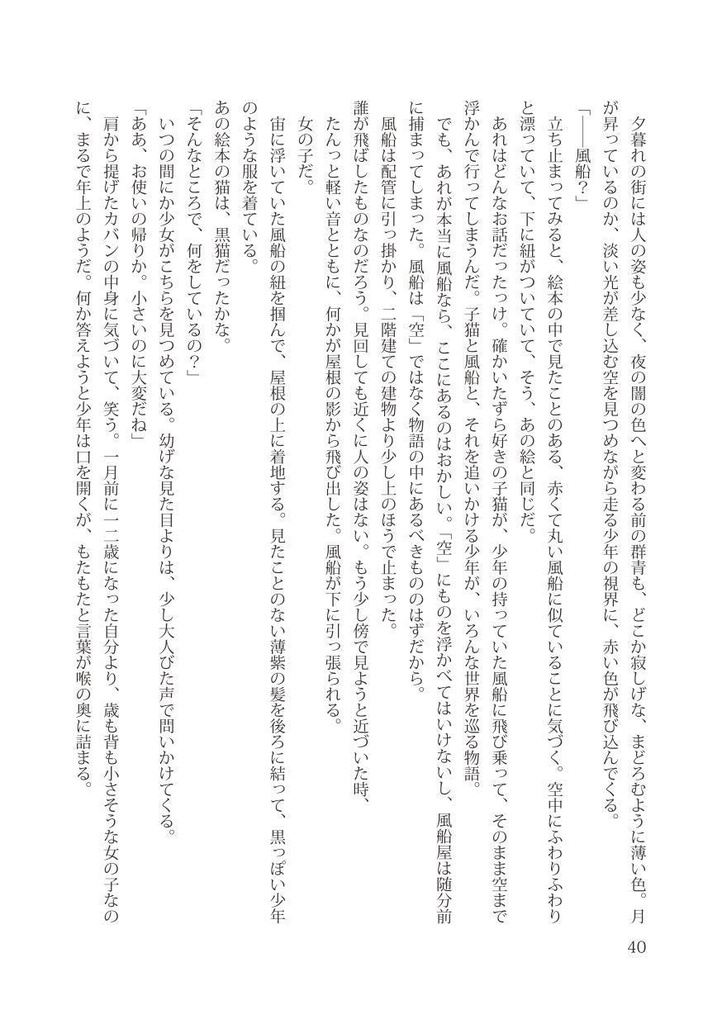 夕暮れの街には人の姿も少なく、夜の闇の色へと変わる前の群青も、どこか寂しげな、まどろむように薄い色。月
が昇っているのか、淡い光が差し込む空を見つめながら走る少年の視界に、赤い色が飛び込んでくる。
「――風船？」
立ち止まってみると、絵本の中で見たことのある、赤くて丸い風船に似ていることに気づく。空中にふわりふわり
と漂っていて、下に紐がついていて、そう、あの絵と同じだ。
あれはどんなお話だったっけ。確かいたずら好きの子猫が、少年の持っていた風船に飛び乗って、そのまま空まで
浮かんで行ってしまうんだ。子猫と風船と、それを追いかける少年が、いろんな世界を巡る物語。
でも、あれが本当に風船なら、ここにあるのはおかしい。「空」にものを浮かべてはいけないし、風船屋は随分前
に捕まってしまった。風船は「空」ではなく物語の中にあるべきもののはずだから。
風船は配管に引っ掛かり、二階建ての建物より少し上のほうで止まった。
誰が飛ばしたものなのだろう。見回しても近くに人の姿はない。もう少し傍で見ようと近づいた時、
たんっと軽い音とともに、何かが屋根の影から飛び出した。風船が下に引っ張られる。
女の子だ。
宙に浮いていた風船の紐を掴んで、屋根の上に着地する。見たことのない薄紫の髪を後ろに結って、黒っぽい少年
のような服を着ている。
あの絵本の猫は、黒猫だったかな。
「そんなところで、何をしているの？」
いつの間にか少女がこちらを見つめている。幼げな見た目よりは、少し大人びた声で問いかけてくる。
「ああ、お使いの帰りか。小さいのに大変だね」
肩から提げたカバンの中身に気づいて、笑う。一月前に一二歳になった自分より、歳も背も小さそうな女の子なの
に、まるで年上のようだ。何か答えようと少年は口を開くが、もたもたと言葉が喉の奥に詰まる。
40